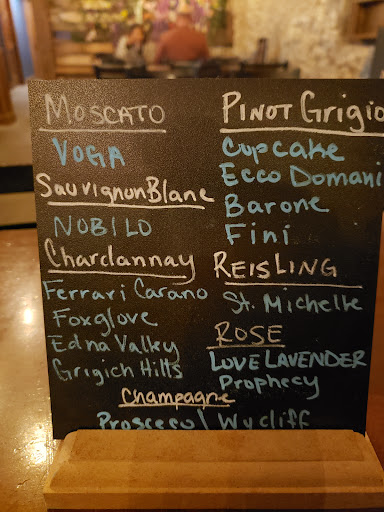 MOSCATO
VOGA
Sauvignon Blanc
NOBILO
Chardannay
Ferrari Carano
Foxglove
Edna Valley
Grigich Hills
PINOT Grigio
Cupcake
Ecco Domani
Barone
Fini
REISLING
St. Michelle
ROSE
LOVE LAVENDER
Prophecy
Champagne
Prosceco / Wycliff